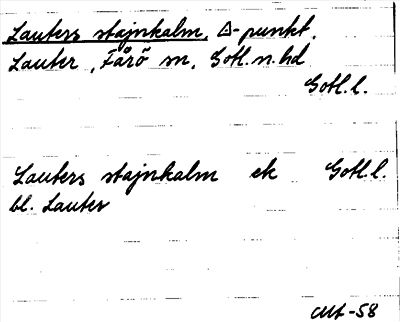 Lauters stajnkalm, △-punkt.
Lauter, Fårö sn, Gotl. n. hd
Gotl. l.
Lauters stajnkalm ek Gotl. l.
bl. Lauter
-58